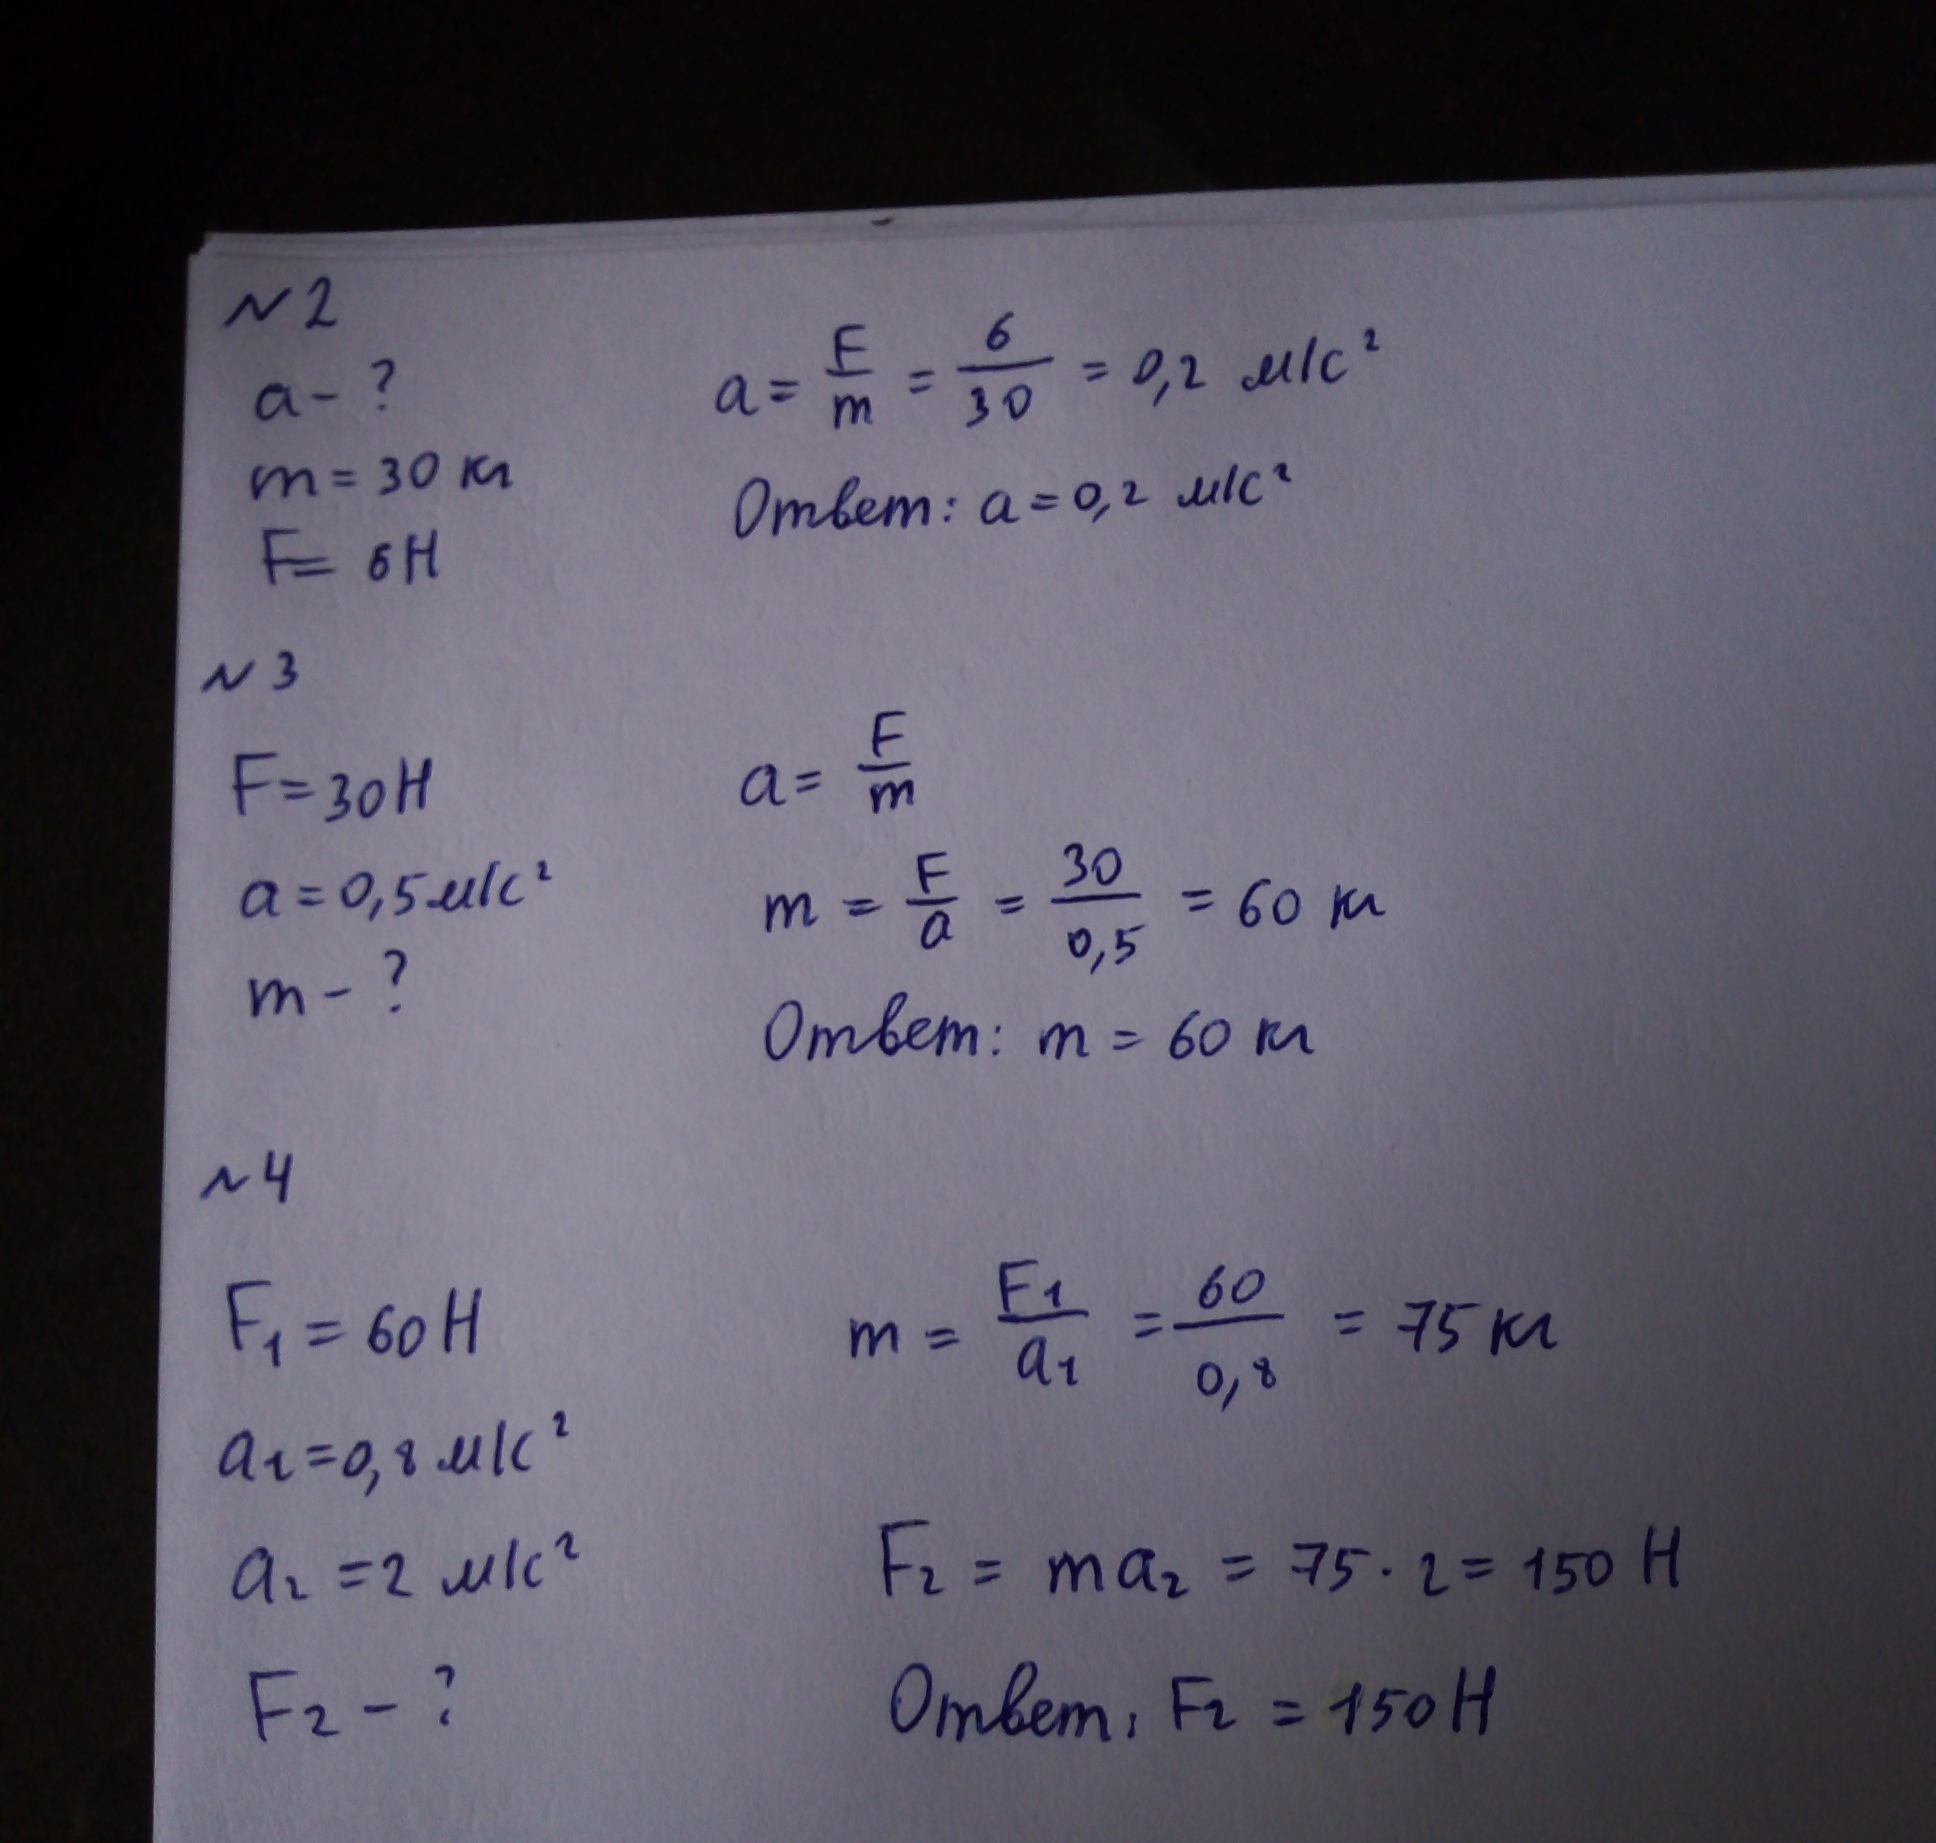 N2
a - ?
m = 30 кг
F = 6H
a = F/m = 6/30 = 0,2 м/с²
Ответ: a = 0,2 м/с²
N3
F = 30H
a = 0,5 м/с²
m - ?
a = F/m
m = F/a = 30/0,5 = 60 кг
Ответ: m = 60 кг
N4
F₁ = 60H
a₁ = 0,8 м/с²
a₂ = 2 м/с²
F₂ - ?
m = F₁/a₁ = 60/0,8 = 75 кг
F₂ = ma₂ = 75 · 2 = 150 H
Ответ: F₂ = 150H